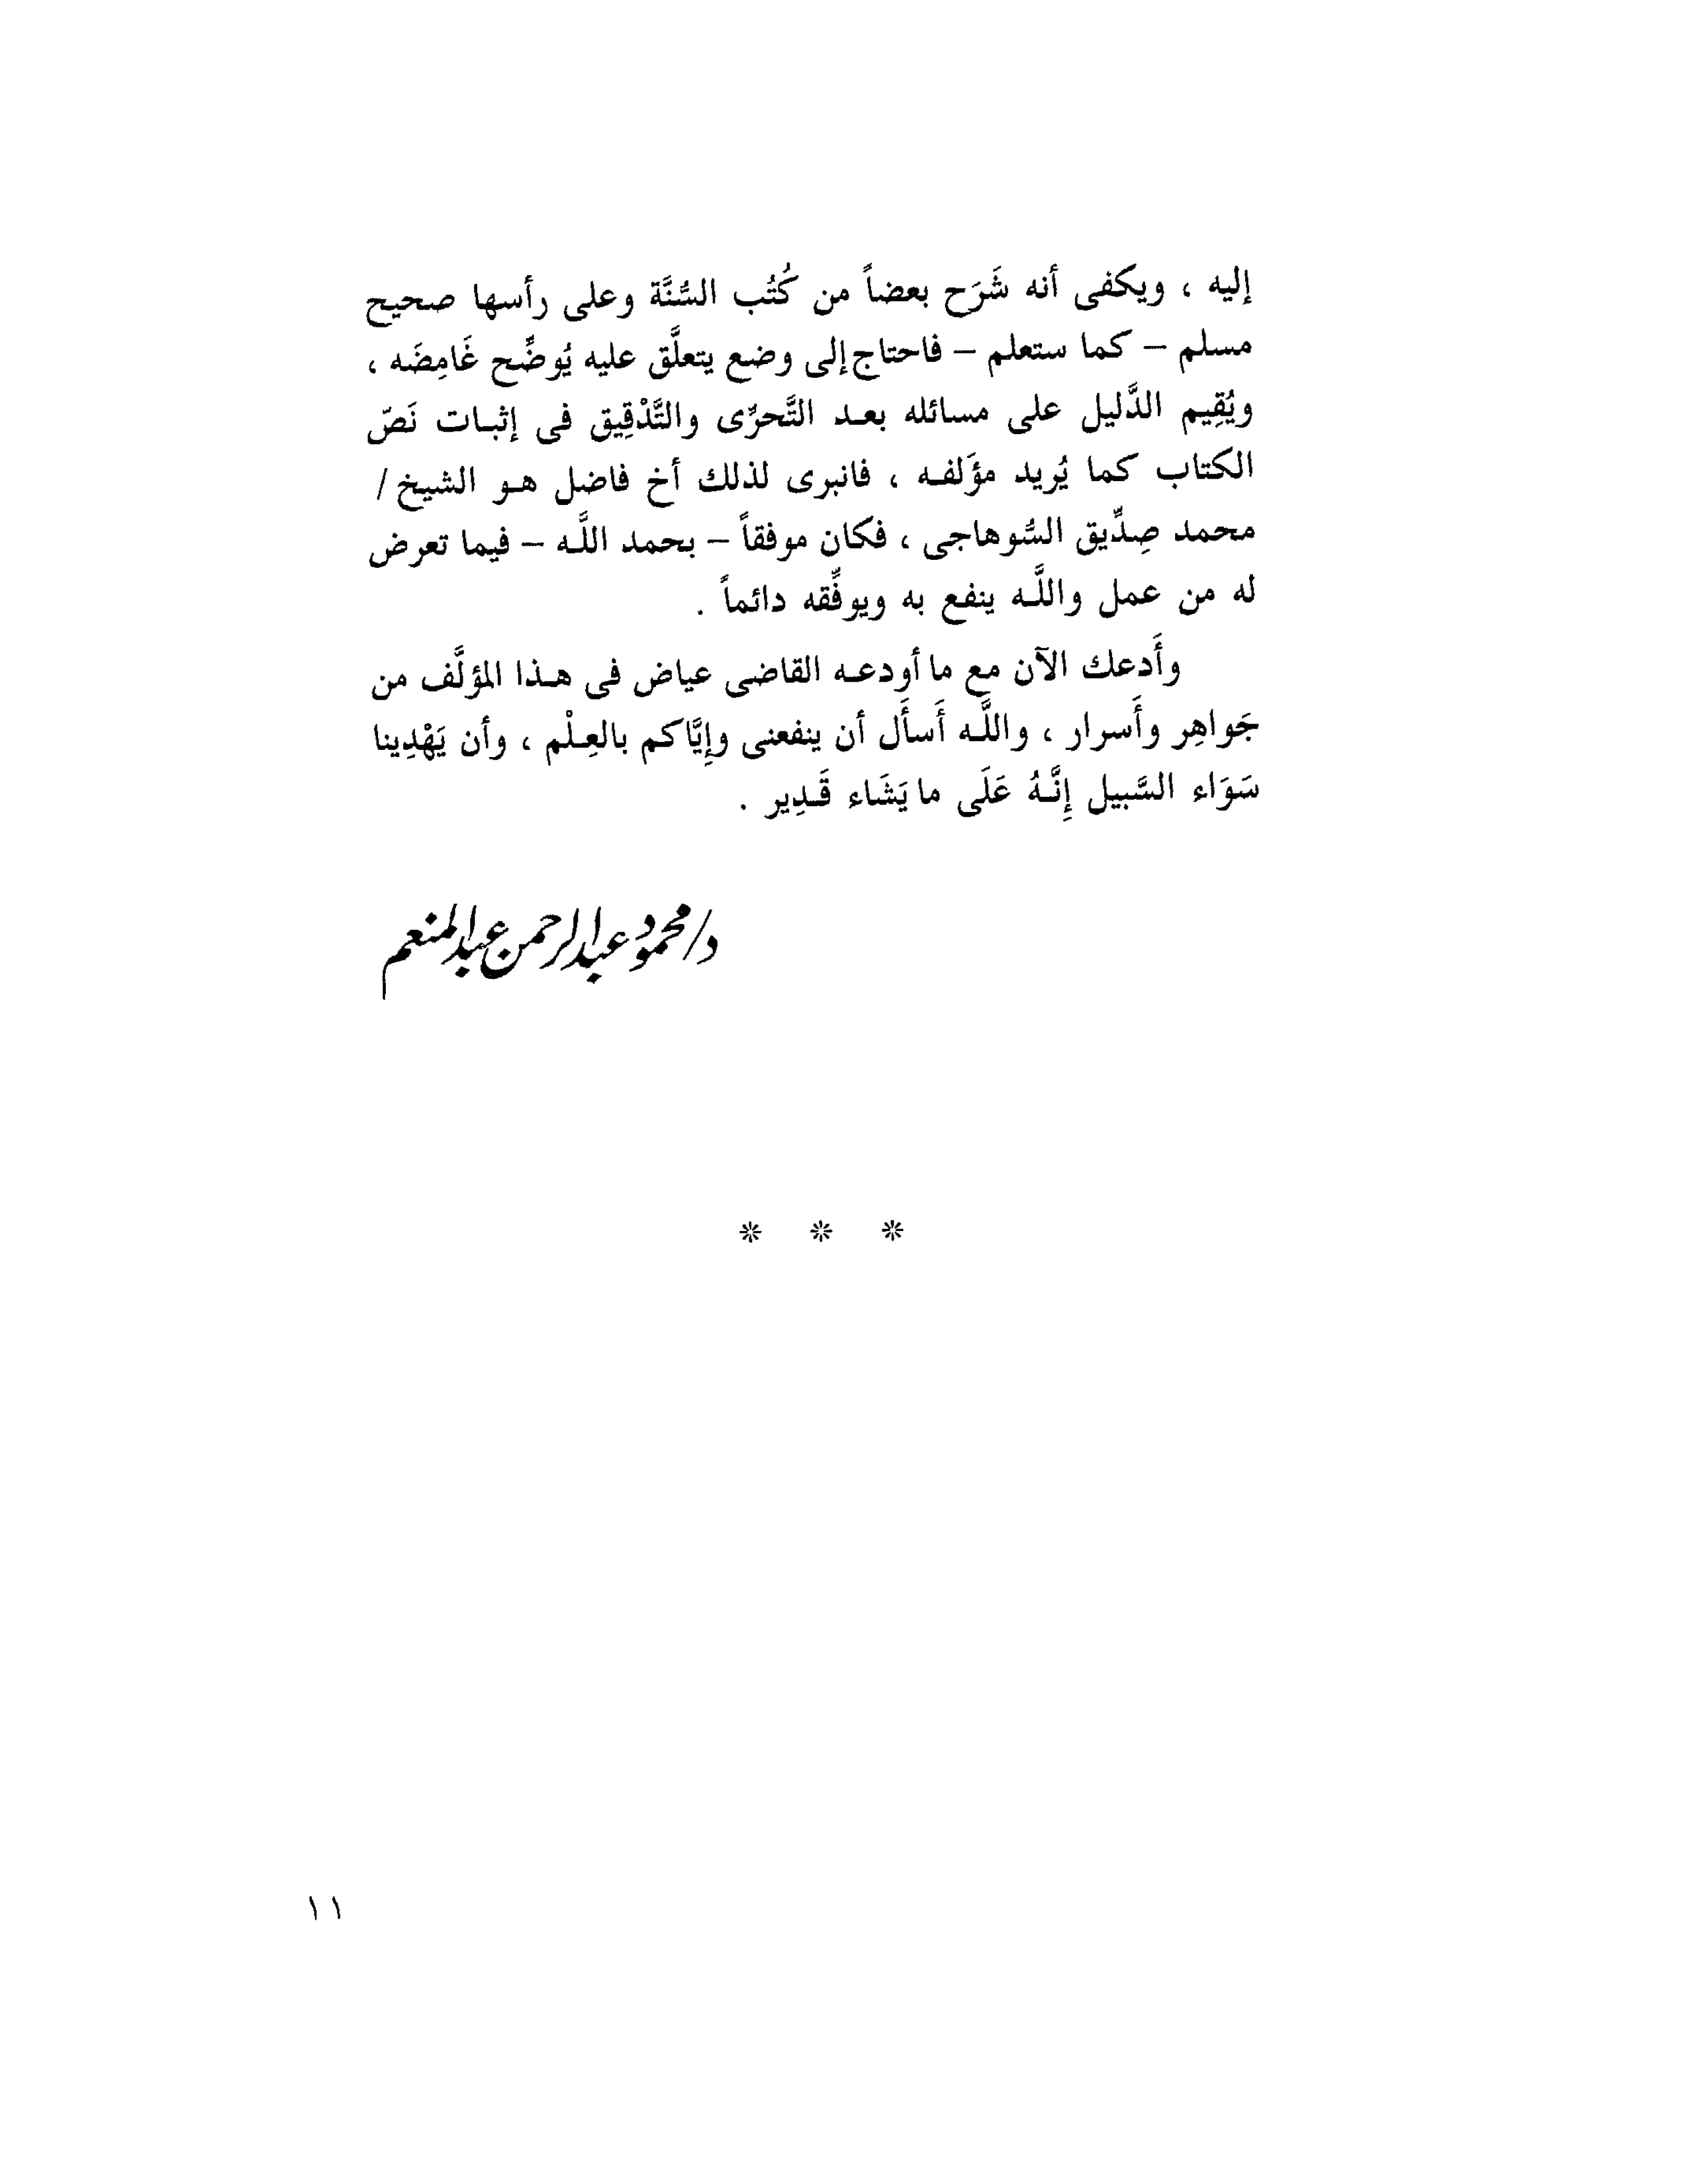 إليه ، ويكفى أنه شَرَح بعضاً من كُتُب السُّنَّة وعلى رأسها صحيح
مسلم – كما ستعلم – فاحتاج إلى وضع يتعلَّق عليه يُوضِّح غَامِضَه ،
ويُقِيم الدَّليل على مسائله بعـد التَّحرِّى والتَّدْقِيق فى إثبـات نَصّ
الكتاب كما يُريد مؤَلفـه ، فانبرى لذلك أخ فاضل هـو الشيخ /
محمد صِدِّيق السُّوهاجى ، فكان موفقاً – بحمد اللَّـه – فيما تعرض
له من عمل واللَّـه ينفع به ويوفِّقه دائماً .
وأَدعك الآن مع ما أودعـه القاضى عياض فى هـذا المؤلَّف من
جَواهِر وأَسرار ، واللَّـه أَسأَل أن ينفعنى وإِيَّاكم بالعِـلْم ، وأن يَهْدِينا
سَوَاء السَّبيل إِنَّـهُ عَلَى ما يَشَاء قَـدِير .
د/ محمود عبد الرحمن عبد المنعم
* * *
١١